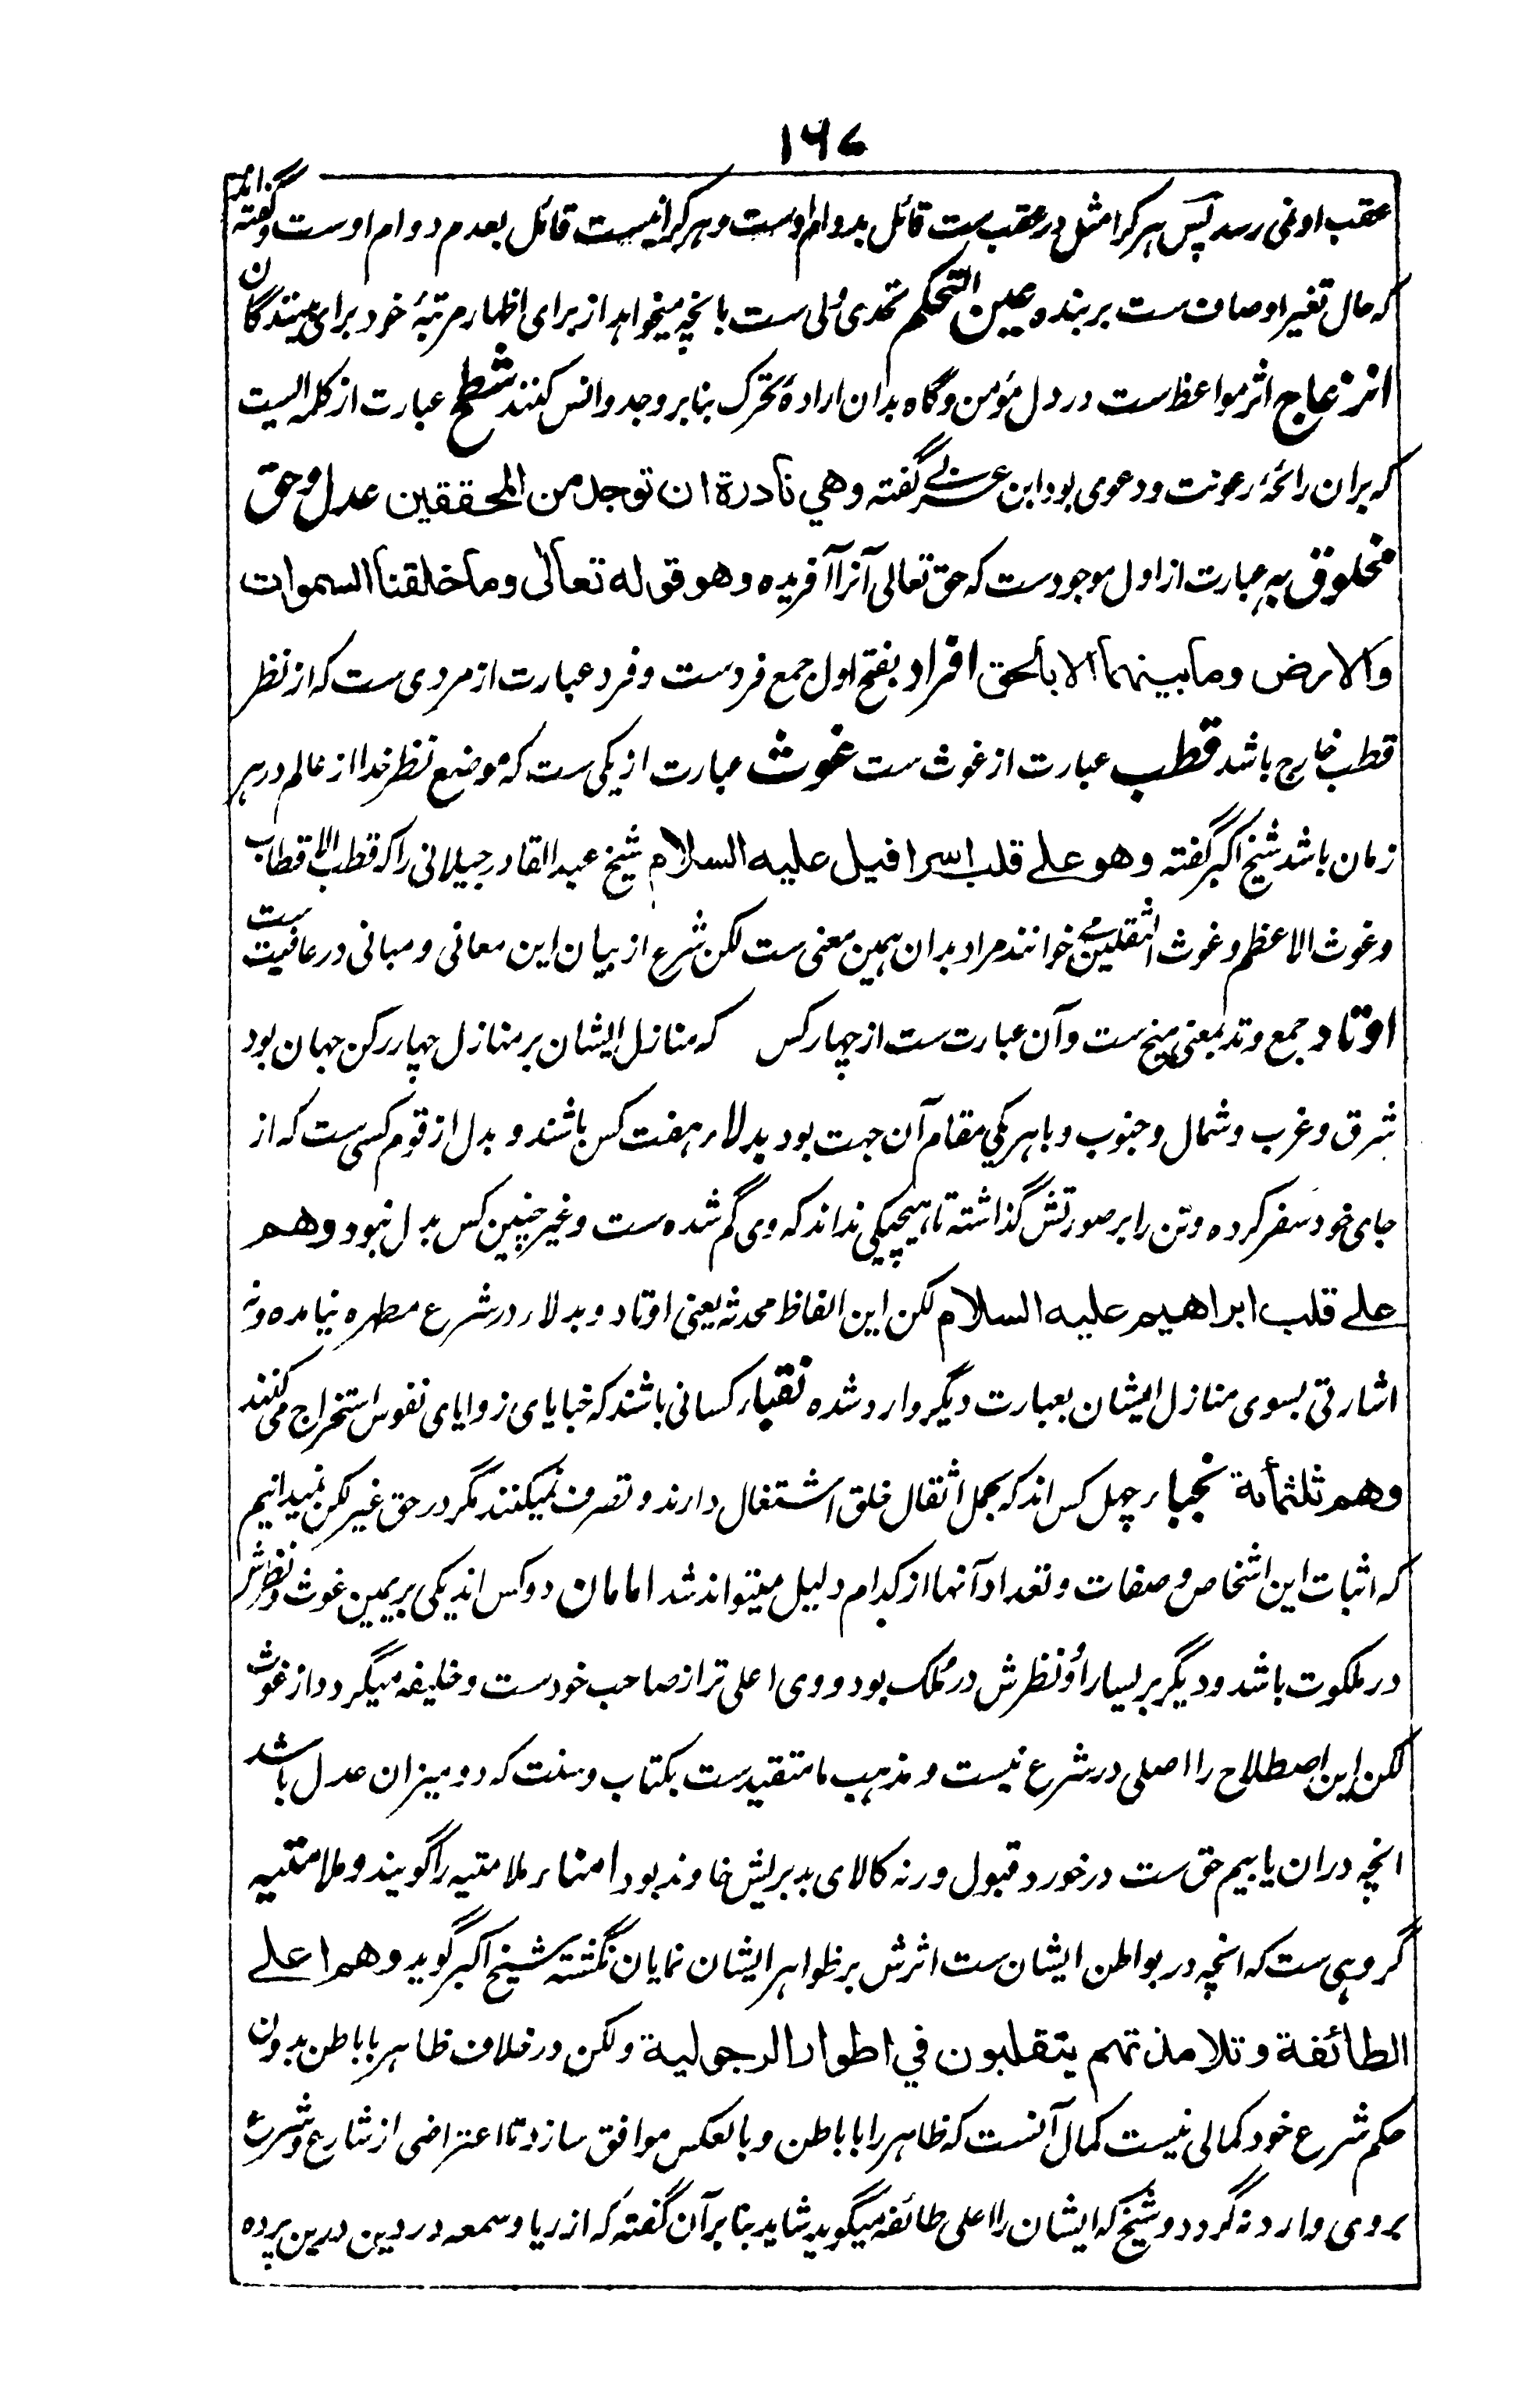 ۱۶۷
عقب او نمی رسد پس هر کرا مثل در عقب ست قائل بدوام اوست و هر کرا نیست قائل بعدم دوام اوست و گفته اند
که حال تغیر اوصاف ست بر بنده عین التحکم تحدی ولی ست بانچه میخواهد از برای اظهار مرتبهٔ خود برای بینندگان
انزعاج اثر مواعظ ست در دل مؤمن و گاه بدان ارادهٔ تحرک بنا بر وجد و انس کنند شطح عبارت از کلمه ایست
که بران رائحهٔ رعونت و دعوی بود ابن عربی گفته وهي نادرة ان توجد من المحققين عدل و حق
مخلوق به عبارت از اول موجودست که حق تعالی آنرا آفریده وهو قوله تعالى وما خلقنا السموات
والارض وما بينهما الا بالحق افراد بفتح اول جمع فردست و فرد عبارت از مردی ست که از نظر
قطب خارج باشد قطب عبارت از غوث ست غوث عبارت از یکی ست که موضع نظر خدا از عالم در هر
زمان باشد شیخ اکبر گفته وهو على قلب اسرافيل عليه السلام شیخ عبد القادر جیلانی را که قطب الاقطاب
و غوث الاعظم و غوث الثقلین می خوانند مراد بدان همین معنی ست لکن شرع از بیان این معانی و مبانی در عافیت ست
اوتاد جمع وتد بمعنی میخ ست و آن عبارت ست از چهار کس که منازل ایشان بر منازل چهار رکن جهان بود
شرق و غرب و شمال و جنوب و با هر یکی مقام آن جهت بود بدلاء هفت کس باشند و بدل از قوم کسی ست که از
جای خود سفر کرده و تن را بر صورتش گذاشته تا هیچیکی نداند که وی گم شده ست و غیر چنین کس بدل نبود وهم
على قلب ابراهيم عليه السلام لکن این الفاظ محدثه یعنی اوتاد و بدلاء در شرع مطهره نیامده و نه
اشارتی بسوی منازل ایشان بعبارت دیگر وارد شده نقباء کسانی باشند که خبایای زوایای نفوس استخراج می کنند
وهم ثلثمأئة نجباء چهل کس اند که بحمل اثقال خلق اشتغال دارند و تصرف نمیکنند مگر در حق غیر لکن نمیدانیم
که اثبات این اشخاص و صفات و تعداد آنها از کدام دلیل میتواند شد امامان دو کس اند یکی بر یمین غوث و نظرش
در ملکوت باشد و دیگر بر یسار او و نظرش در ملک بود و وی اعلی تر از صاحب خودست و خلیفه میگردد از غوث
لکن این اصطلاح را اصلی در شرع نیست و مذهب ما متقیدست بکتاب و سنت که دو میزان عدل باشد
انچه دران یابیم حق ست در خورد قبول ورنه کالای بد بریش خاوند بود امناء ملامتیه را گویند و ملامتیه
گروهی ست که انچه در بواطن ایشان ست اثرش بر ظواهر ایشان نمایان نگشته شیخ اکبر گوید وهم اعلى
الطائفة وتلامذتهم يتقلبون في اطوار الرجولية و لکن در خلاف ظاهر با باطن بدون
حکم شرع خود کمالی نیست کمال آنست که ظاهر را با باطن و بالعکس موافق سازد تا اعتراضی از شارع و شرع
بروی وارد نه گردد و شیخ که ایشان را اعلی طائفه میگوید شاید بنا بر آن گفته که از ریا و سمعه در دین درین پرده